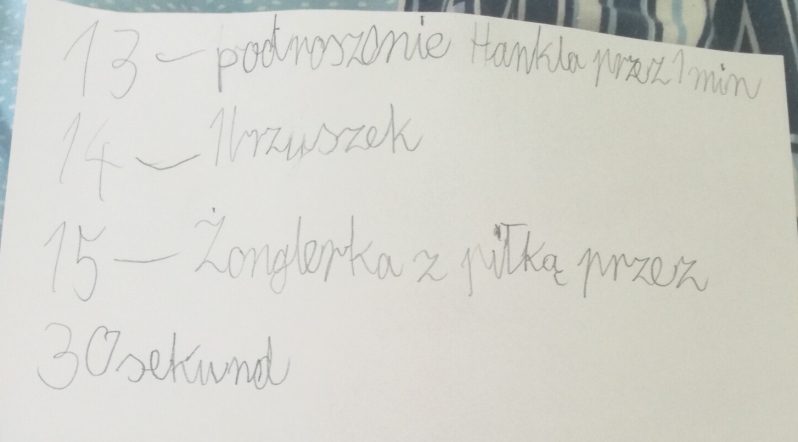 13 – podnoszenie Hankla przez 1 min
14 – 1 brzuszek
15 – Żonglerka z piłką przez
30 sekund